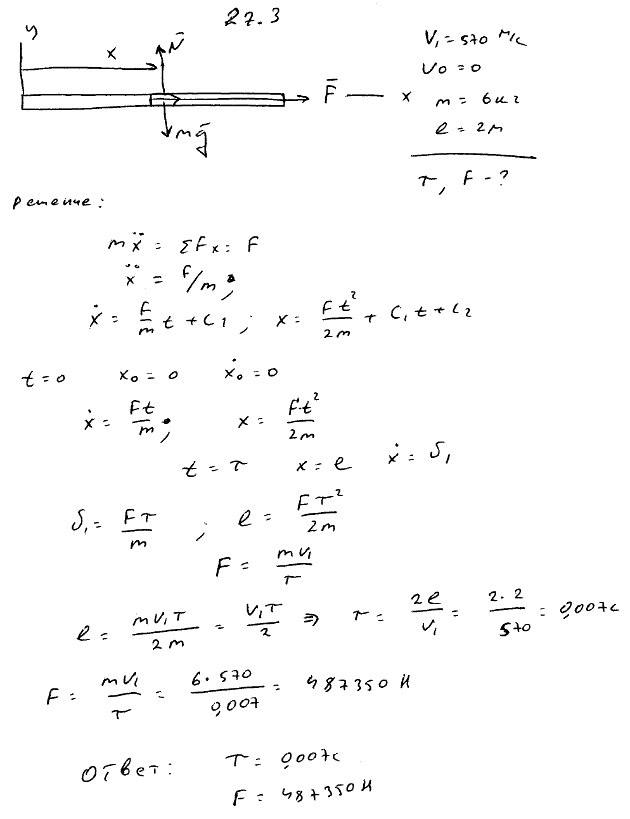 27.3
y
x
N̄
V₁ = 570 м/с
v₀ = 0
F̄
x
m = 6кг
mḡ
l = 2м
τ, F - ?
Решение:
mẍ = ΣFx = F
ẍ = F/m;
ẋ = F/m t + C₁; x = Ft²/2m + C₁t + C₂
t = 0 x₀ = 0 ẋ₀ = 0
ẋ = Ft/m; x = Ft²/2m
t = τ x = l ẋ = υ₁
υ₁ = Fτ/m; l = Fτ²/2m
F = mv₁/τ
l = mv₁τ/2m = v₁τ/2 ⇒ τ = 2l/v₁ = 2·2/570 = 0,007с
F = mv₁/τ = 6·570/0,007 = 487350 Н
Ответ: τ = 0,007с
F = 487350Н